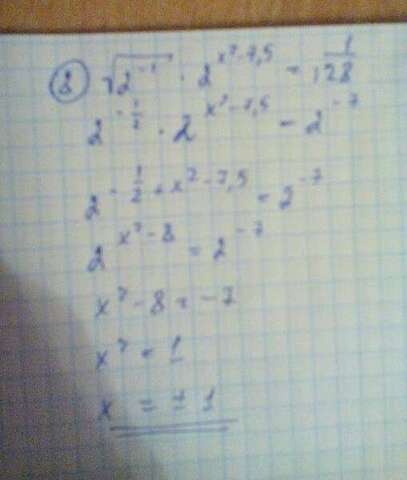 ② √2⁻¹ · 2^(x²-7,5) = 1/128
2^(-1/2) · 2^(x²-7,5) = 2^(-7)
2^(-1/2 + x²-7,5) = 2^(-7)
2^(x²-8) = 2^(-7)
x² - 8 = -7
x² = 1
x = ± 1